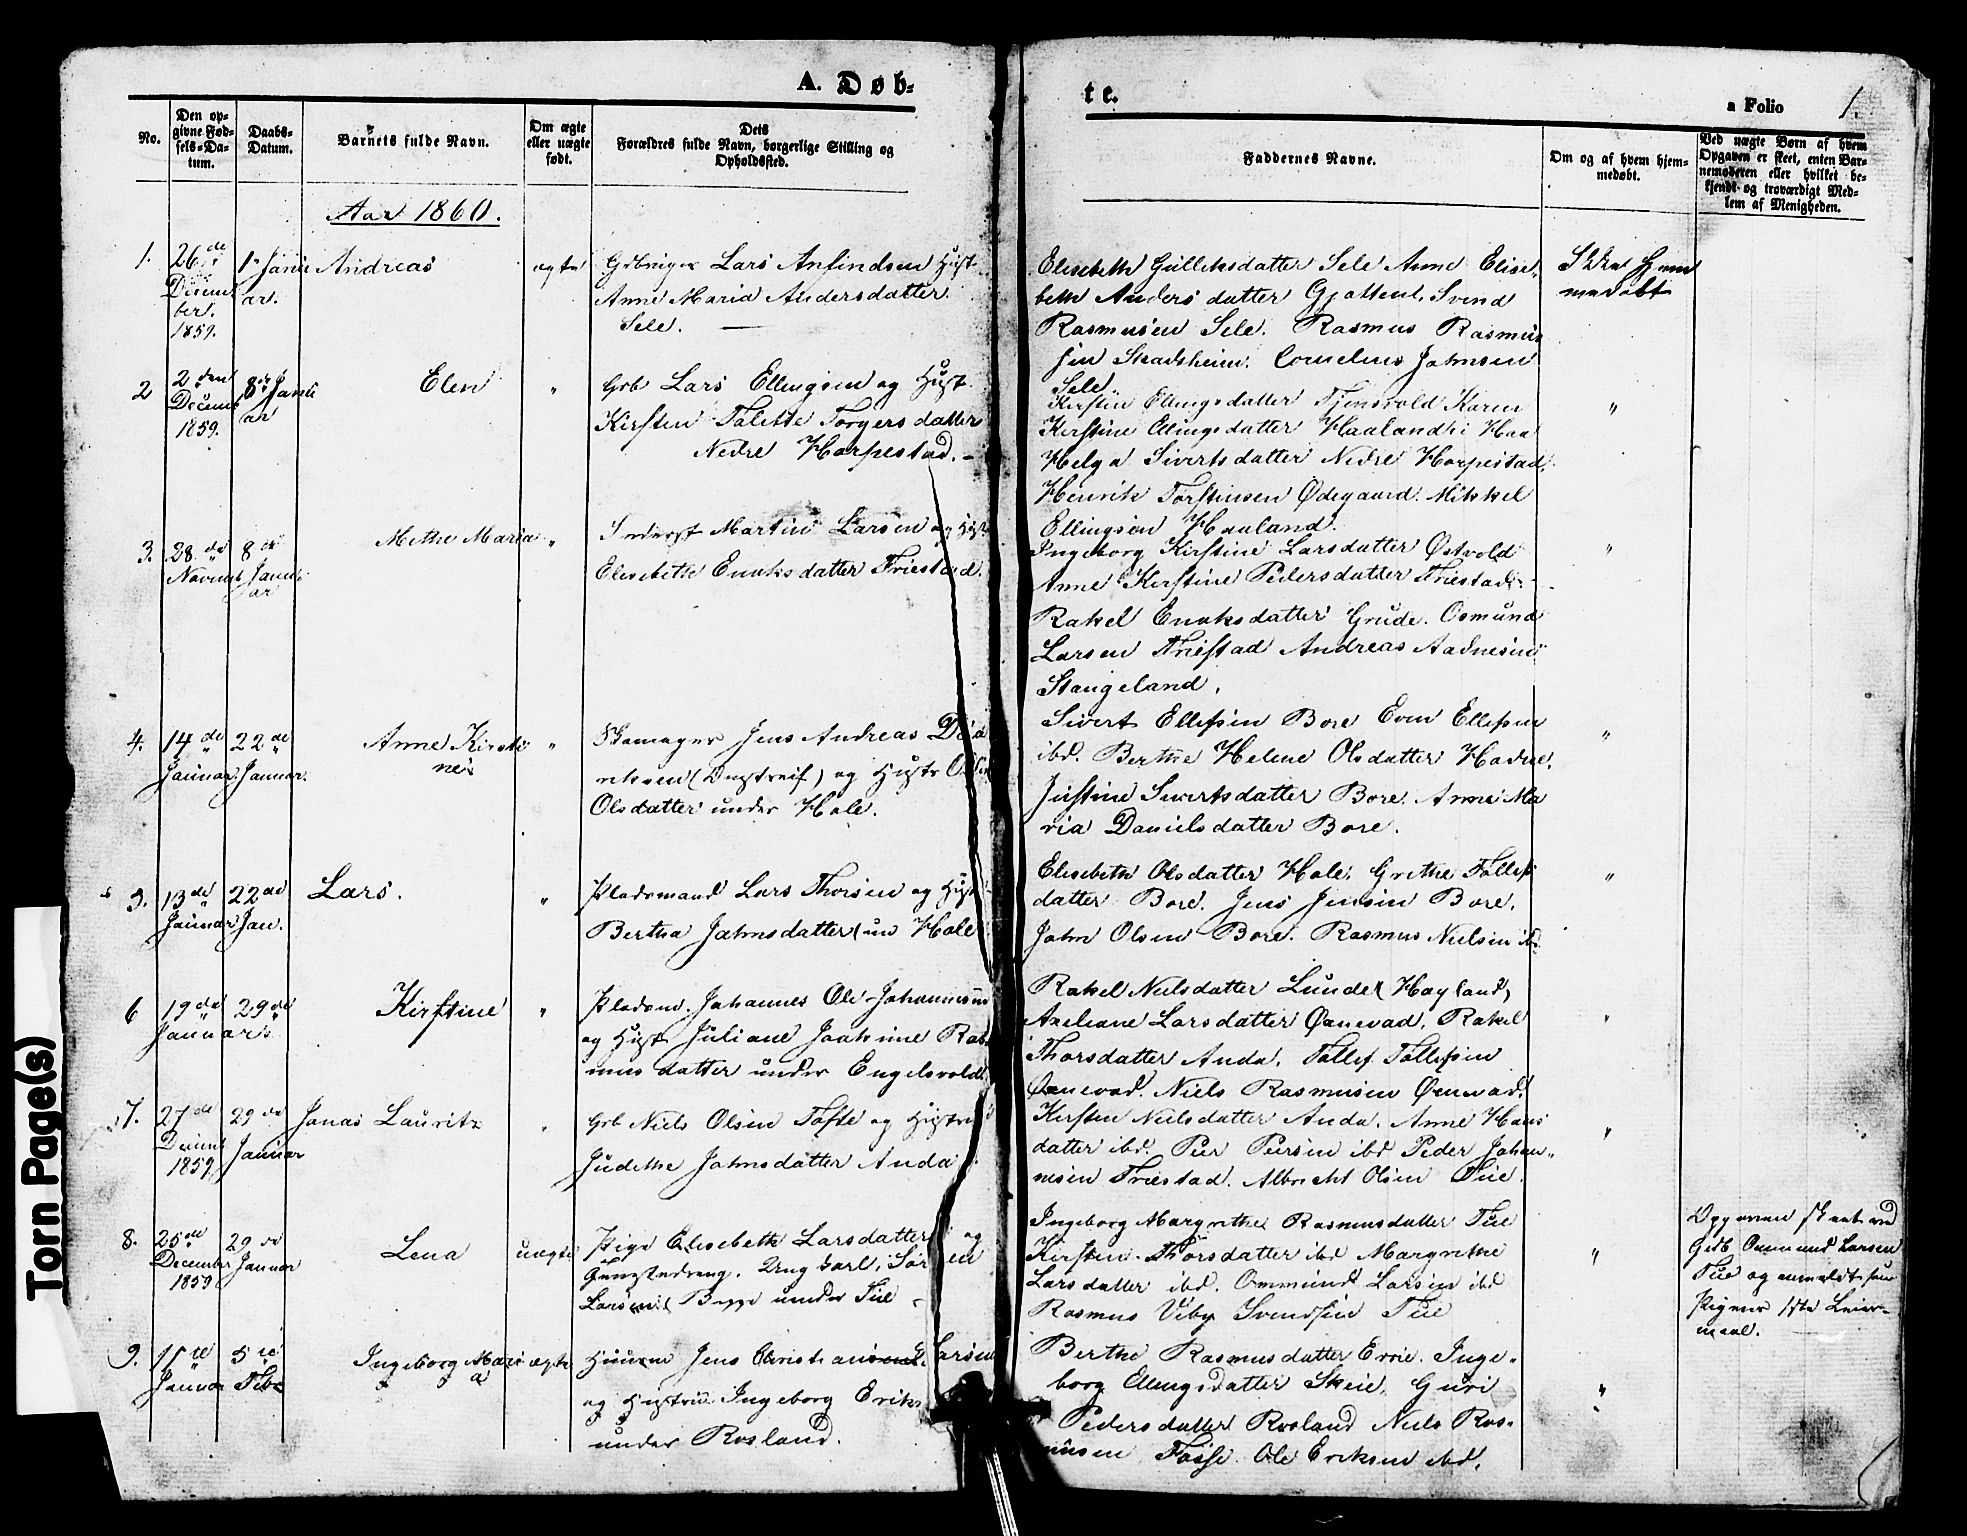 A. Døb-
te.
a Folio 1.
No.
Den op-
givne Fød-
sels-Da-
tum.
Daabs-
Datum.
Barnets fulde Navn.
Om ægte
eller uægte
født.
Dets
Forældres fulde Navn, borgerlige Stilling og
Opholdssted.
Faddernes Navne.
Om og af hvem hjem-
medøbt.
Ved uægte Børn af hvem
Opgaven er skeet, enten Bar-
nemoderen eller hvilket be-
kjendt og troværdigt Med-
lem af Menigheden.
Aar 1860.
1.
26de
Decem
ber.
1859.
1. Janu
ar.
Andreas
ægte
Lars Anfindsen Hust.
Anne Maria Andersdatter
Sele.
Elisebeth Gulleksdatter Sele Anne Elise-
beth Andersdatter Svend
Rasmusen Sele. Rasmus Rasmus
sen Cornelius Jahnsen
Sele.
Ikke Hjem
medøbt
2
2den
Decemb
1859.
8de Janu
ar
Elen
"
Grb Lars Ellingsen og Hust.
Kirsten Talette Torgersdatter
Nedre Harpestad.
Kirsten Ellingsdatter Karen
Kirstine Ellingsdatter Haaland i Haa
Helga Sivertsdatter Nedre Harpestad,
Henrik Torstensen Ødegaard. Mikkel
Ellingsen Haaland.
"
3.
28de
Novemb
8de
Janu
ar
Methe Maria
"
Inderst Martin Larsen og Hust
Elisebeth Enoksdatter Friestad.
Ingeborg Kirstine Larsdatter Østvold
Anne Kirstine Pedersdatter Friestad.
Rakel Enoksdatter Grude. Osmund
Larsen Friestad Andreas Aadnesen
Stangeland.
"
4.
14de
Januar
22de
Januar.
Anne Kirsti
ne
"
Skomager Jens Andreas
og Hustr
Olsdatter under Hole.
Sivert Ellefsen Bore Even Ellefsen
ibd. Berthe Helene Olsdatter
Justine Sivertsdatter Bore. Anne Ma
ria Danielsdatter Bore.
"
5.
13de
Januar
22de
Jan.
Lars.
"
Pladsmand Lars Thorsen og Hust
Bertha Jahnsdatter (un Hole
Elisebeth Olsdatter Hole. Grethe Tollefs
datter Bore. Jens Jensen Bore.
Jahn Olsen Bore. Rasmus Nielsen ibd
"
6
19de
29de
Januar
Kirstine
"
Pladsm. Johannes Ole Johannesen
og Hust Juliane Joakime Ras
mus datter under Engelsvold
Rakel Nielsdatter Lunde (Høyland)
Axeliane Larsdatter Øxnevad. Rakel
Thorsdatter Anda. Tollef Tollefsen
Øxnevad. Niels Rasmusen Øxnevad.
"
7.
27de
Decemb
1859
29de
Januar
Jonas Lauritz
"
Grb Niels Olsen Tofte og Hustru
Judethe Jahnsdatter Anda
Kirsten Nielsdatter Anda. Anne Hans
datter ibd. Peer Peersen ibd Peder Johan-
nesen Friestad. Albrecht Olsen Tue.
"
8.
25de
December
1859
29de
Januar
Lena
uægte
Pige Elisebeth Larsdatter og
Ungkarl,
Larsen Begge under Tue
Ingeborg Margrethe Rasmusdatter Tue
Kirsten Thorsdatter ibd Margrethe
Larsdatter ibd. Ommund Larsen ibd
Rasmus Svendsen Tue
"
Opgaven skeet ved
Gdb Ommund Larsen
Tue og anmeldt som
Pigens 1ste Leier-
maal.
9.
11te
Januar
5te
Feb
Ingeborg Mari
a
ægte
Huusm Jens Christiansen Larsen
og Hustru Ingeborg Eriks
under Rosland.
Berthe Rasmusdatter Erie. Inge-
borg Ellingsdatter Skeie. Guri
Pedersdatter Rosland Niels Ras-
musen Fosse. Ole Eriksen ibd.
"
Torn Page(s)